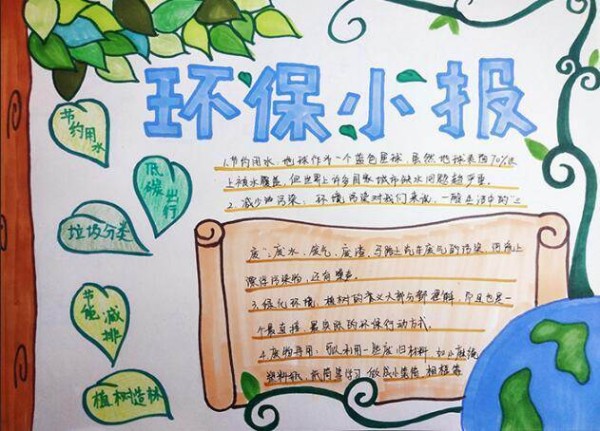 环保小报
节约用水
低碳出行
垃圾分类
节能减排
植树造林
1.节约用水:地球作为一个蓝色星球,虽然地球表面70%以
上被水覆盖,但世界上许多国家城市缺水问题较严重。
2.减少污染:环境污染对我们来说,一般是活中的
废、废水、废气、废渣,马路上汽车废气的污染,河面上
漂浮污染物,还有噪音。
3.绿化环境:植树的意义大部分都理解,而且也是一
个最直接、最有效的环保行动方式。
4.废物再用:可以利用一些废旧材料,如
塑料纸,